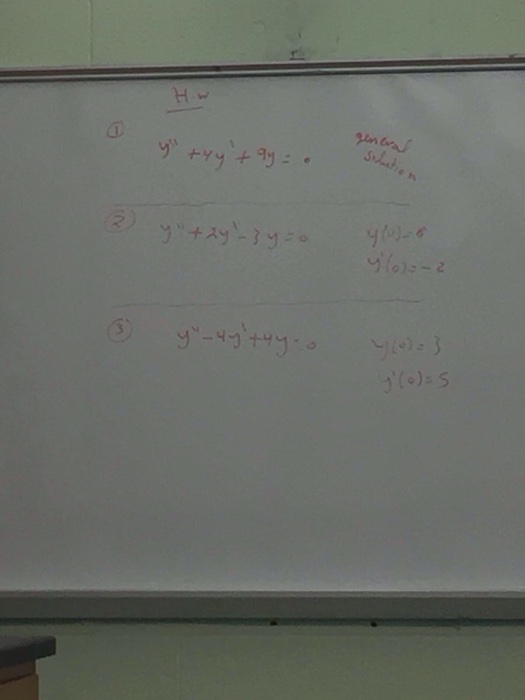 H.w
① y'' + 4y' + 9y = 0 general
solution
② y'' + 2y' - 3y = 0 y(0) = 6
y'(0) = -2
③ y'' - 4y' + 4y = 0 y(0) = 3
y'(0) = 5